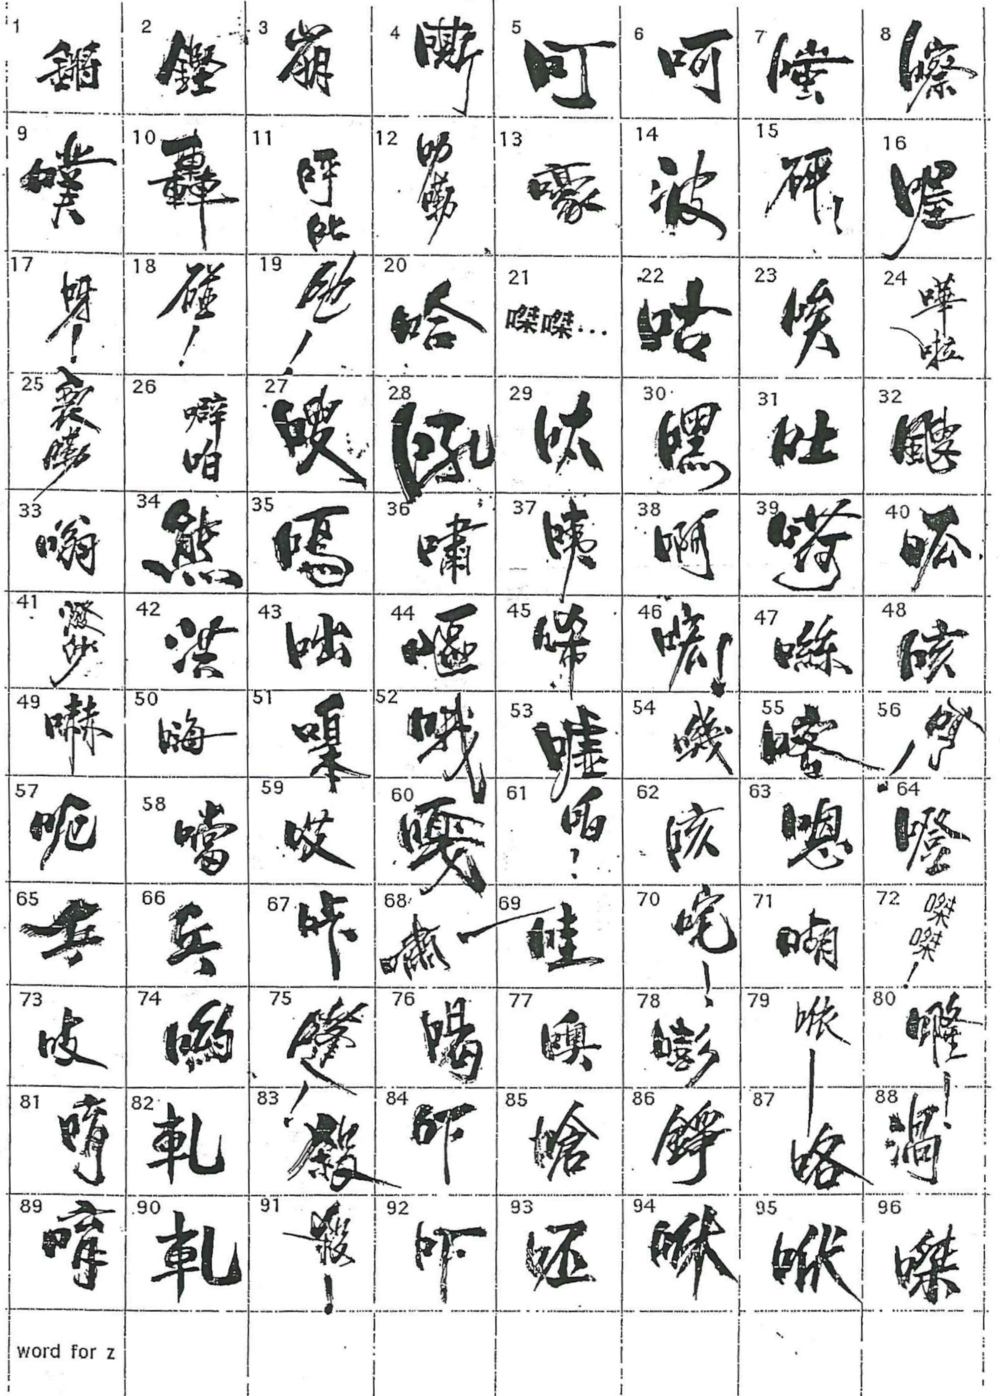 1 鏘
2 鏗
3 崩
4 嘶
5 叮
6 呵
7 嗤
8 嚓
9 噗
10 轟
11 呼 吡
12
13 嚎
14 波
15 砰!
16 喔
17 呀!
18 碰!
19
20 哈
21 嗶嗶…
22 咕
23 唉
24 嘩 啦
25
26 噼 啪
27 嗖
28 吼
29 呔
30 嘿
31 吐
32 颼
33 嗡
34 熊
35 嗎
36 嘯
37 咦
38 啊
39
40 呱
41 潑 沙
42 洪
43 咄
44 嘔
45 唏
46
47 噝
48 咳
49 嚇
50
51 嗅
52 哦
53 噓
54 嘰
55 喀
56
57 呃
58 噹
59 哎
60 嘎
61 咱?
62 咳
63 嗯
64 噔
65
66 兵
67 咔
68 嘯
69 哇
70 咤!
71 啁
72 嗶 嗶!
73 吱
74 喲
75
76 喝
77 噢
78 嘭
79 哌
80 嚨!
81 唷
82 軋
83 殺
84 吓
85 嗆
86 錚
87 咯
88 渦
89 唷
90 軋
91 殺!
92 吓
93 呸
94 啾
95 啾
96 嗶
word for z